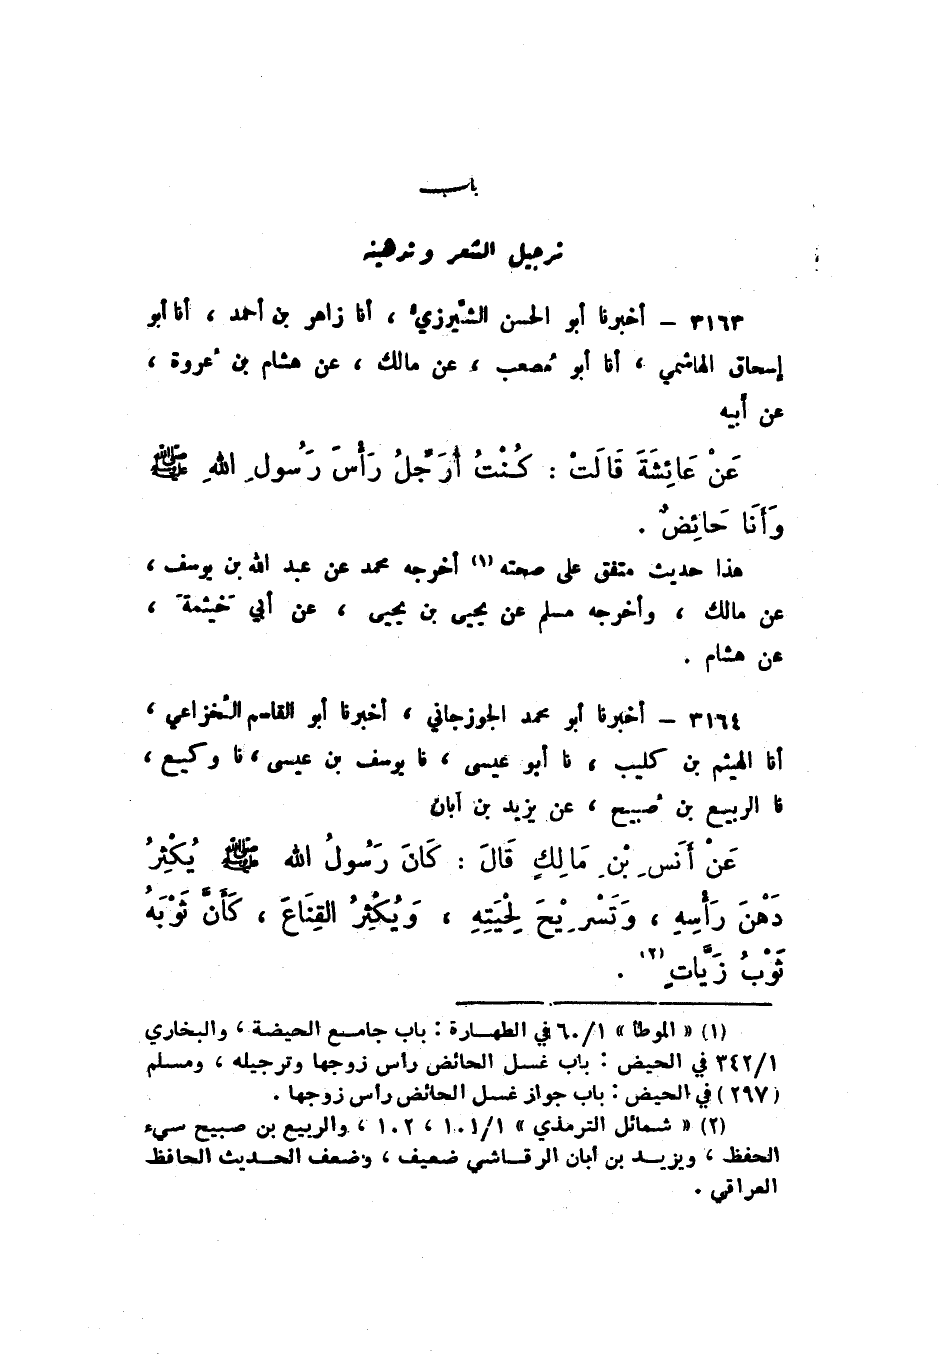 باب
ترجيل الشعر وتدهينه
٣١٦٣ - أخبرنا أبو الحسن الشِّيرزيُّ ، أنا زاهر بن أحمد ، أنا أبو
إسحاق الهاشمي ، أنا أبو مُصعب ، عن مالك ، عن هشام بن عُروة ،
عن أبيه
عَنْ عَائِشَةَ قَالَتْ : كُنْتُ أُرَجِّلُ رَأْسَ رَسُولِ اللهِ ﷺ
وَأَنَا حَائِضٌ .
هذا حديث متفق على صحته (١) أخرجه محمد عن عبد الله بن يوسف ،
عن مالك ، وأخرجه مسلم عن يحيى بن يحيى ، عن أبي خَيثمةَ ،
عن هشام .
٣١٦٤ - أخبرنا أبو محمد الجوزجاني ، أخبرنا أبو القاسم الخُزاعي ،
أنا الهيثم بن كليب ، نا أبو عيسى ، نا يوسف بن عيسى ، نا وكيع ،
نا الربيع بن صُبيح ، عن يزيد بن أبان
عَنْ أَنَسِ بْنِ مَالِكٍ قَالَ : كَانَ رَسُولُ اللهِ ﷺ يُكْثِرُ
دَهْنَ رَأْسِهِ ، وَتَسْرِيْحَ لِحْيَتِهِ ، وَيُكْثِرُ القِنَاعَ ، كَأَنَّ ثَوْبَهُ
ثَوْبُ زَيَّاتٍ (٢) .
(١) « الموطأ » ٦٠/١ في الطهارة : باب جامع الحيضة ، والبخاري
٣٤٢/١ في الحيض : باب غسل الحائض رأس زوجها وترجيله ، ومسلم
(٢٩٧) في الحيض : باب جواز غسل الحائض رأس زوجها .
(٢) « شمائل الترمذي » ١٠١/١ ، ١٠٢ ، والربيع بن صبيح سيء
الحفظ ، ويزيد بن أبان الرقاشي ضعيف ، وضعف الحديث الحافظ
العراقي .